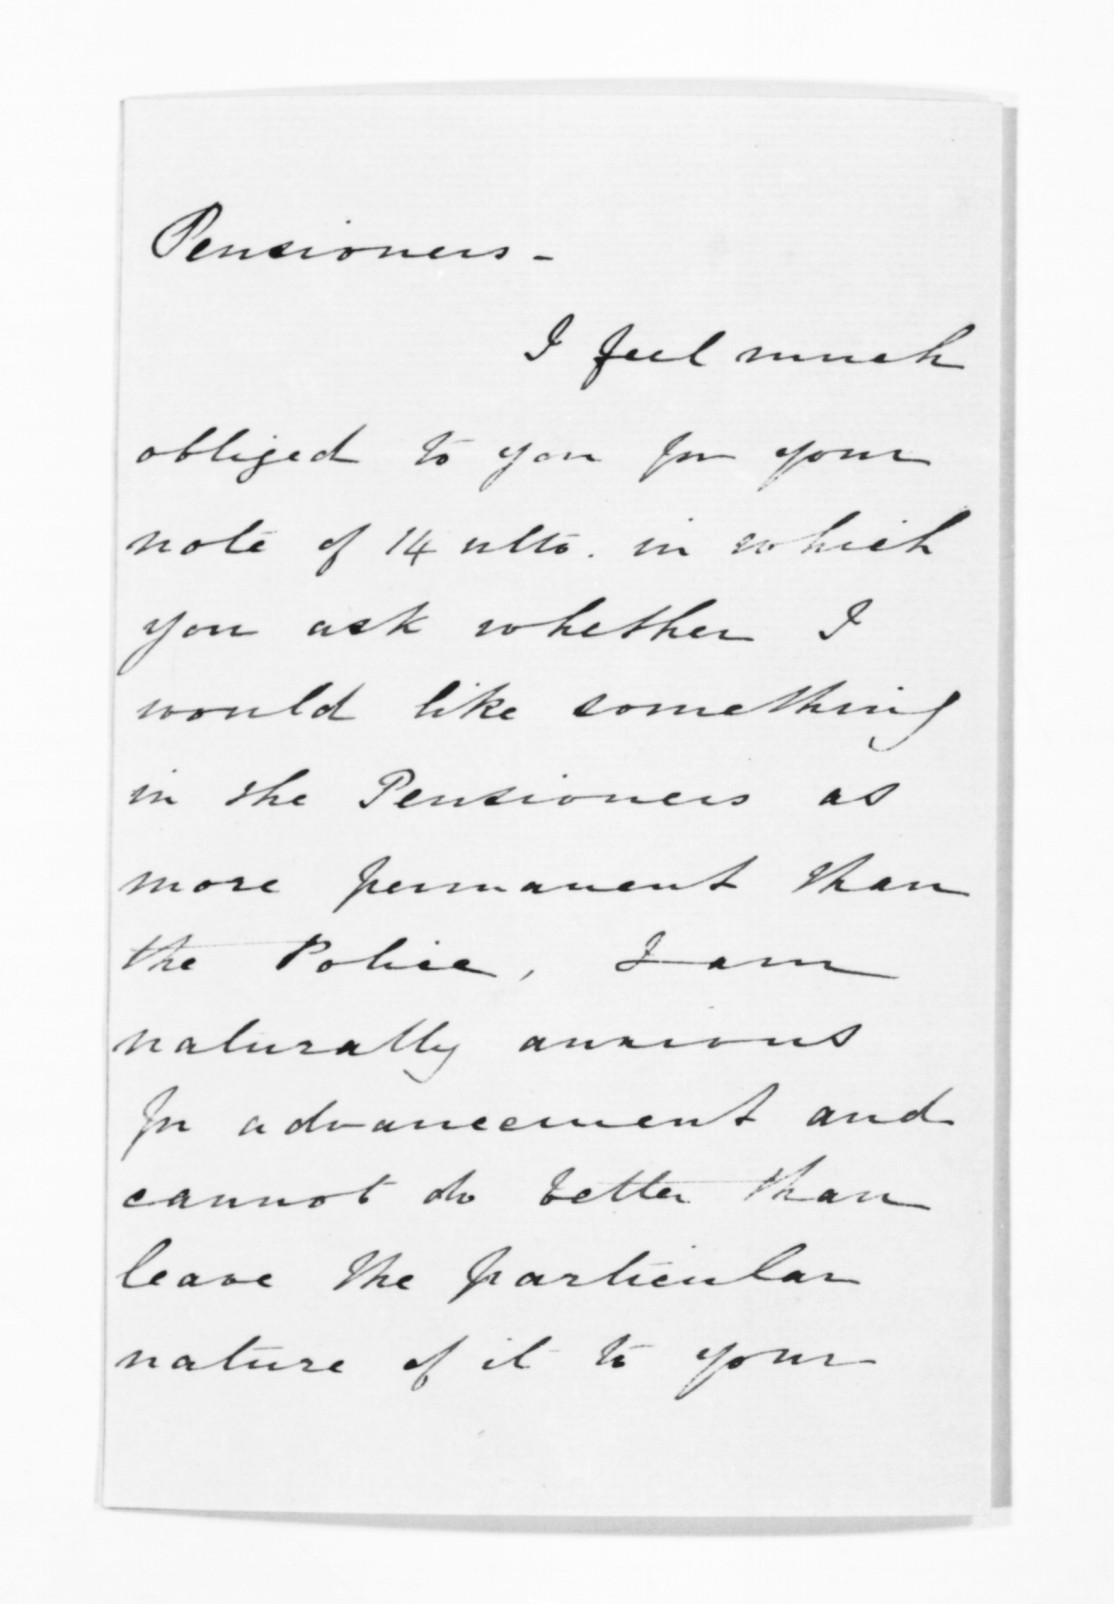 Pensioners -
I feel much
obliged to you for your
note of 14 ulto. in which
you ask whether I
would like something
in the Pensioners as
more permanent than
the Police, I am
naturally anxious
for advancement and
cannot do better than
leave the particular
nature of it to your